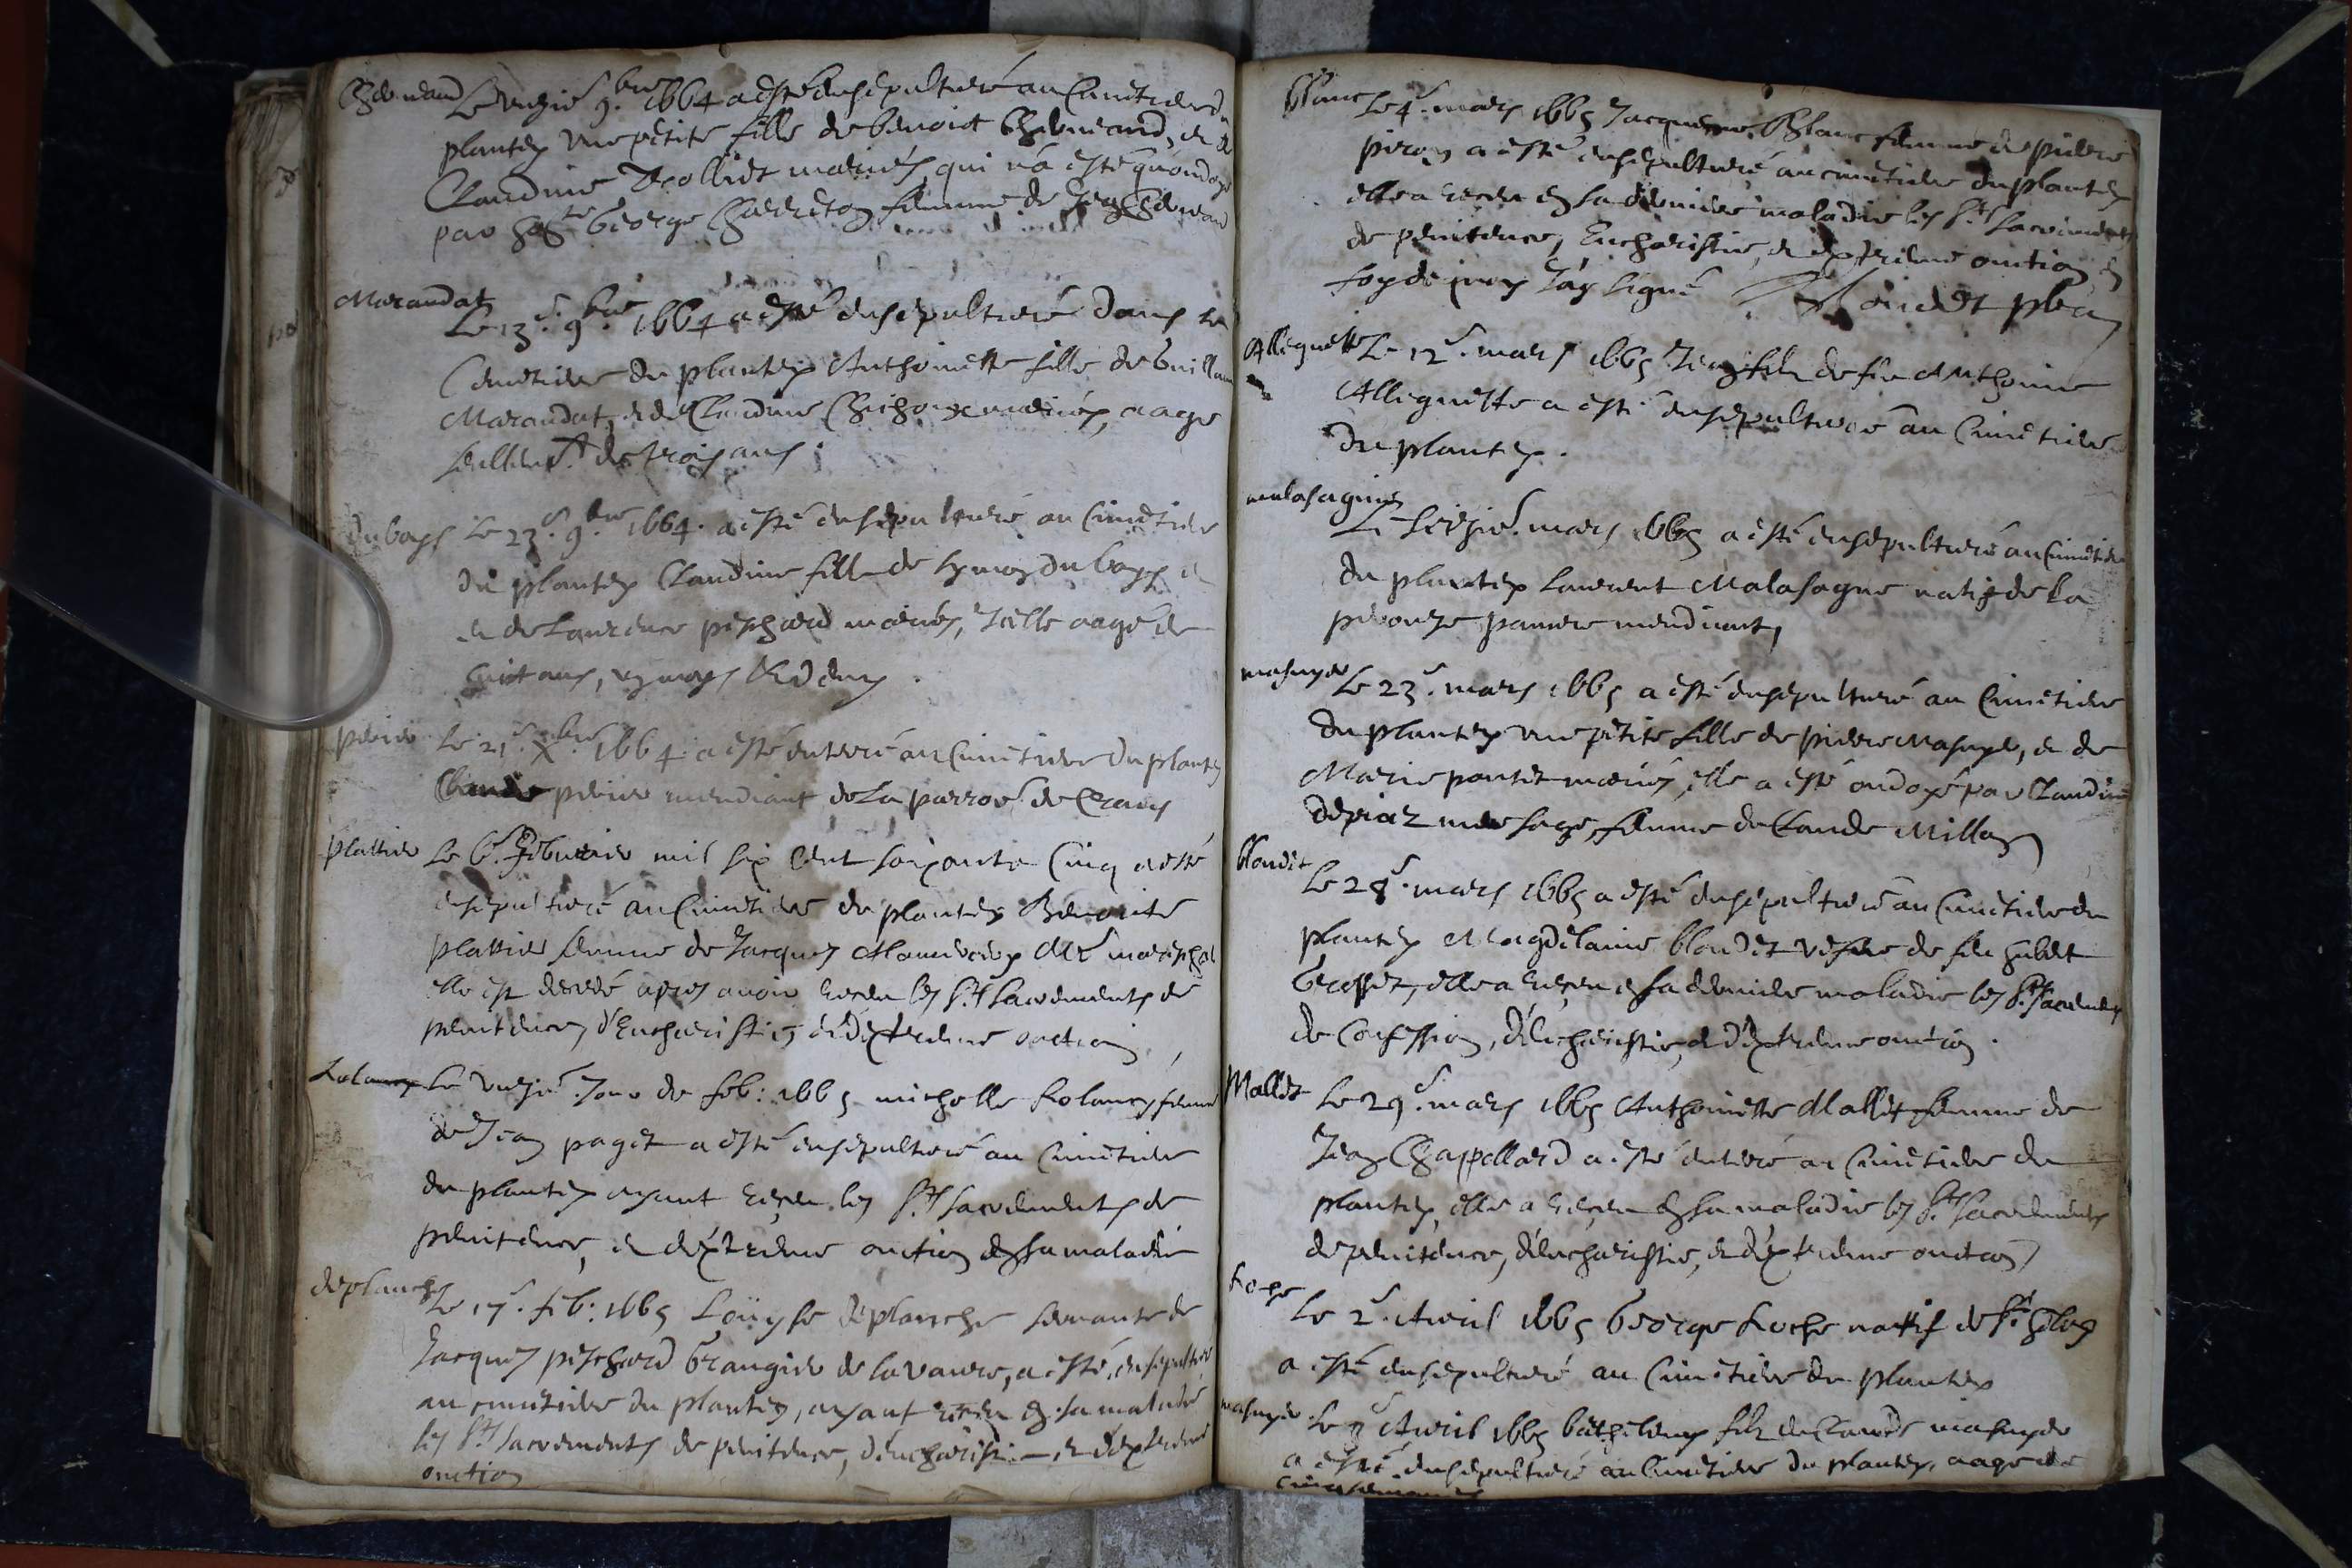 Le unzie 9.bre 1664 a esté ensepulturé au Cimetiere du
plantey une petite fille de benoist Chevenard, et de
Claudine mariés, qui n'a esté qu'ondoyé
par hon.te George femme de Jean Chevenard
Marandat
Le 13.e 9.bre 1664 a esté ensepulturé dans le
Cemetiere du plantey Anthoinette fille de Guillaume
Marandat, et de Claudine mariés, aagé
seullem.t de trois ans.
duboys Le 23.e 9.bre 1664. a esté ensepulturé au Cimetiere
du plantey Claudine fille de Symon duboys et
et de Laurence peschard mariés, Icelle aagé de
huit ans, moys et demy.
perier Le 21.e X.bre 1664 a esté enterré au Cimetiere du plantey
Claude perier mendiant de la parroe. de Crans
plattier Le 6.e febvrier mil six cent soixante Cinq a esté
ensepulturé au Cimetiere du plantey Benoite
plattier femme de Jacques M.e mareschal
elle est decedé apres avoir receu les S.ts Sacrements de
penitence, d'Eucharistie, et d'extreme onction,
Le unzie. Jour de feb: 1665 michelle Rolancy femme
de Jean paget a esté ensepulturé au Cimetiere
du plantey ayant receu les S.ts Sacrements de
penitence, et d'extreme onction en sa maladie
deplanche
Le 17.e feb: 1665 Loüyse deplanche servante de
Jacques peschard Grangier de la vavre, a esté ensepulturé
au cimetiere du plantey, ayant receu en sa maladie
les S.ts Sacrements de penitence, d'eucharistie, et d'extreme
onction
blanc Le 4.e mars 1665 Jacquemme Blanc femme de pierre
piron a esté ensepulturé au cimetiere du plantey
elle a receu en sa derniere maladie les S.ts Sacrements
de penitence, Eucharistie, et extreme onction en
foy de quoy J'ay signé
Alliquette Le 12.e mars 1665 Jean fils de feu Anthoine
Alliquette a esté ensepulturé au Cimetiere
du plantey.
malasagne
Le seizie. mars 1665 a esté ensepulturé au Cimetiere
du plantey Laurent Malasagne natif de la
pauvre mendiant,
masuyer Le 23.e mars 1665 a esté ensepulturé au Cimetiere
du plantey une petite fille de pierre Masuyer, et de
Marie pontet mariés, elle a esté ondoyé par Claudine
depraz mere sage, femme de Claude Millon
blondet
Le 28.e mars 1665 a esté ensepulturé au Cimetiere du
plantey Magdelaine blondet vefve de feu
Grosset, elle a receu en sa derniere maladie les S.ts Sacrements
de Confession, d'Eucharistie, et d'extreme onction.
Mallet Le 29.e mars 1665 Anthoinette Mallet femme de
Jean Chappellard a esté enterré au Cimetiere du
plantey, elle a receu en sa maladie les S.ts Sacrements
de penitence, d'eucharistie, et d'extreme onction
Roche
Le 2.e Avril 1665 George Roche nattif de
a esté ensepulturé au Cimetiere du plantey
masuyer Le Avril 1665 fils de Claude masuyer
a esté ensepulturé au Cimetiere du plantey, aagé de